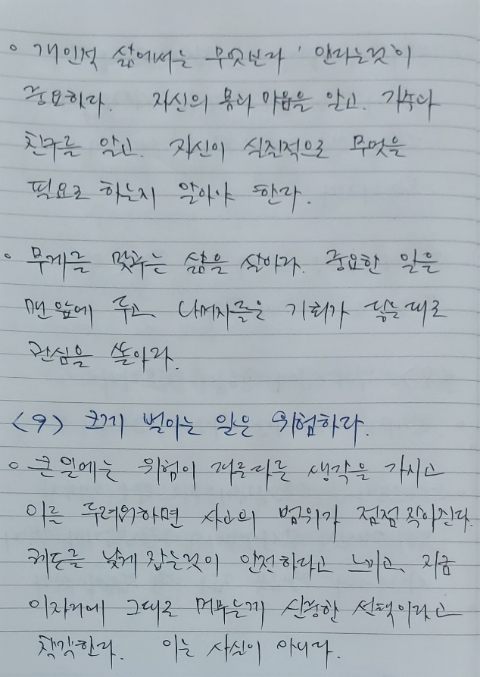 ◦ 개인적 삶에서는 무엇보다 '안다는것'이
중요하다. 자신의 몸과 마음을 알고. 가족과
친구를 알고. 자신이 실질적으로 무엇을
필요로 하는지 알아야 한다.
◦ 무게를 맞추는 삶을 살아라. 중요한 일을
맨앞에 두고 나머지들은 기회가 닿는대로
관심을 쏟아라.
<9> 크게 벌이는 일은 위험하다.
◦ 큰일에는 위험이 따른다는 생각을 가지고
이를 두려워하면 사고의 범위가 점점 작아진다.
낮게 잡는것이 안전하다고 느끼고, 지금
이자리에 그대로 머무는게 신중한 선택이라고
착각한다. 이는 사실이 아니다.